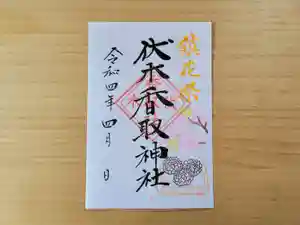 鎮花祭
伏木香取神社
令和四年四月 日